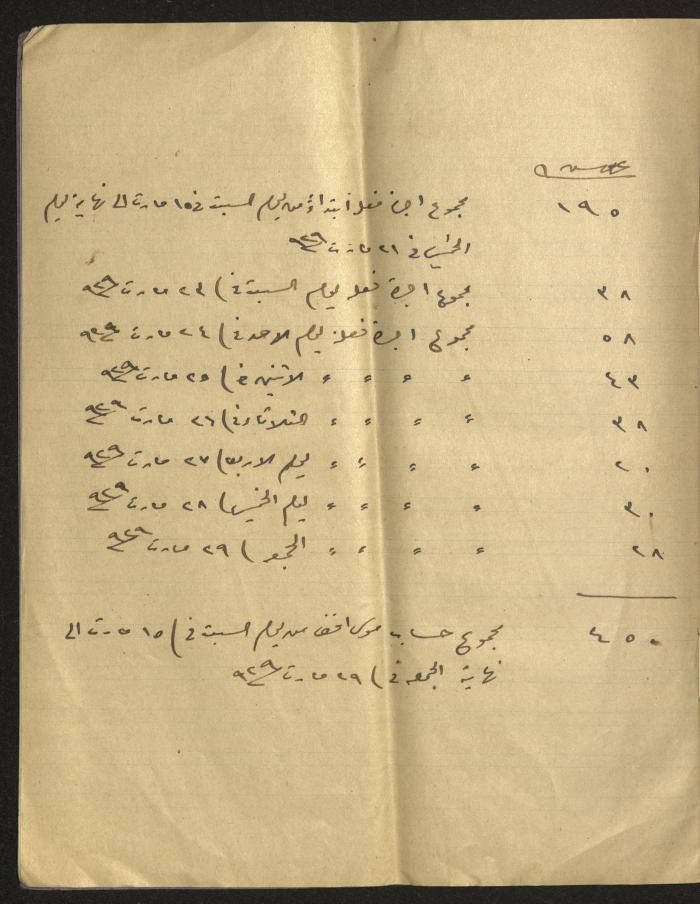 ١٩٥ مجموع اجرة فعلة ابتداءً من يوم السبت في ١٥ مارت الى نهاية يوم
الخميس في ٢١ مارت ٩٢٩
٣٨ مجموع اجرة فعلة يوم السبت في ( ٢٣ مارت ٩٢٩
٥٨ مجموع اجرة فعلة يوم الاحد في ( ٢٤ مارت ٩٢٩
٤٣ 〃 〃 〃 〃 الاثنين في ( ٢٥ مارت ٩٢٩
٣٨ 〃 〃 〃 〃 الثلاثاء في ( ٢٦ مارت ٩٢٩
٢٠ 〃 〃 〃 〃 يوم الاربعا ( ٢٧ مارت ٩٢٩
٣٠ 〃 〃 〃 〃 يوم الخميس ( ٢٨ مارت ٩٢٩
٢٨ 〃 〃 〃 〃 الجمعه ( ٢٩ مارت ٩٢٩
٤٥٠ مجموع حساب موسى افندي من يوم السبت في ( ١٥ مارت الى
نهاية الجمعه في ( ٢٩ مارت ٩٢٩